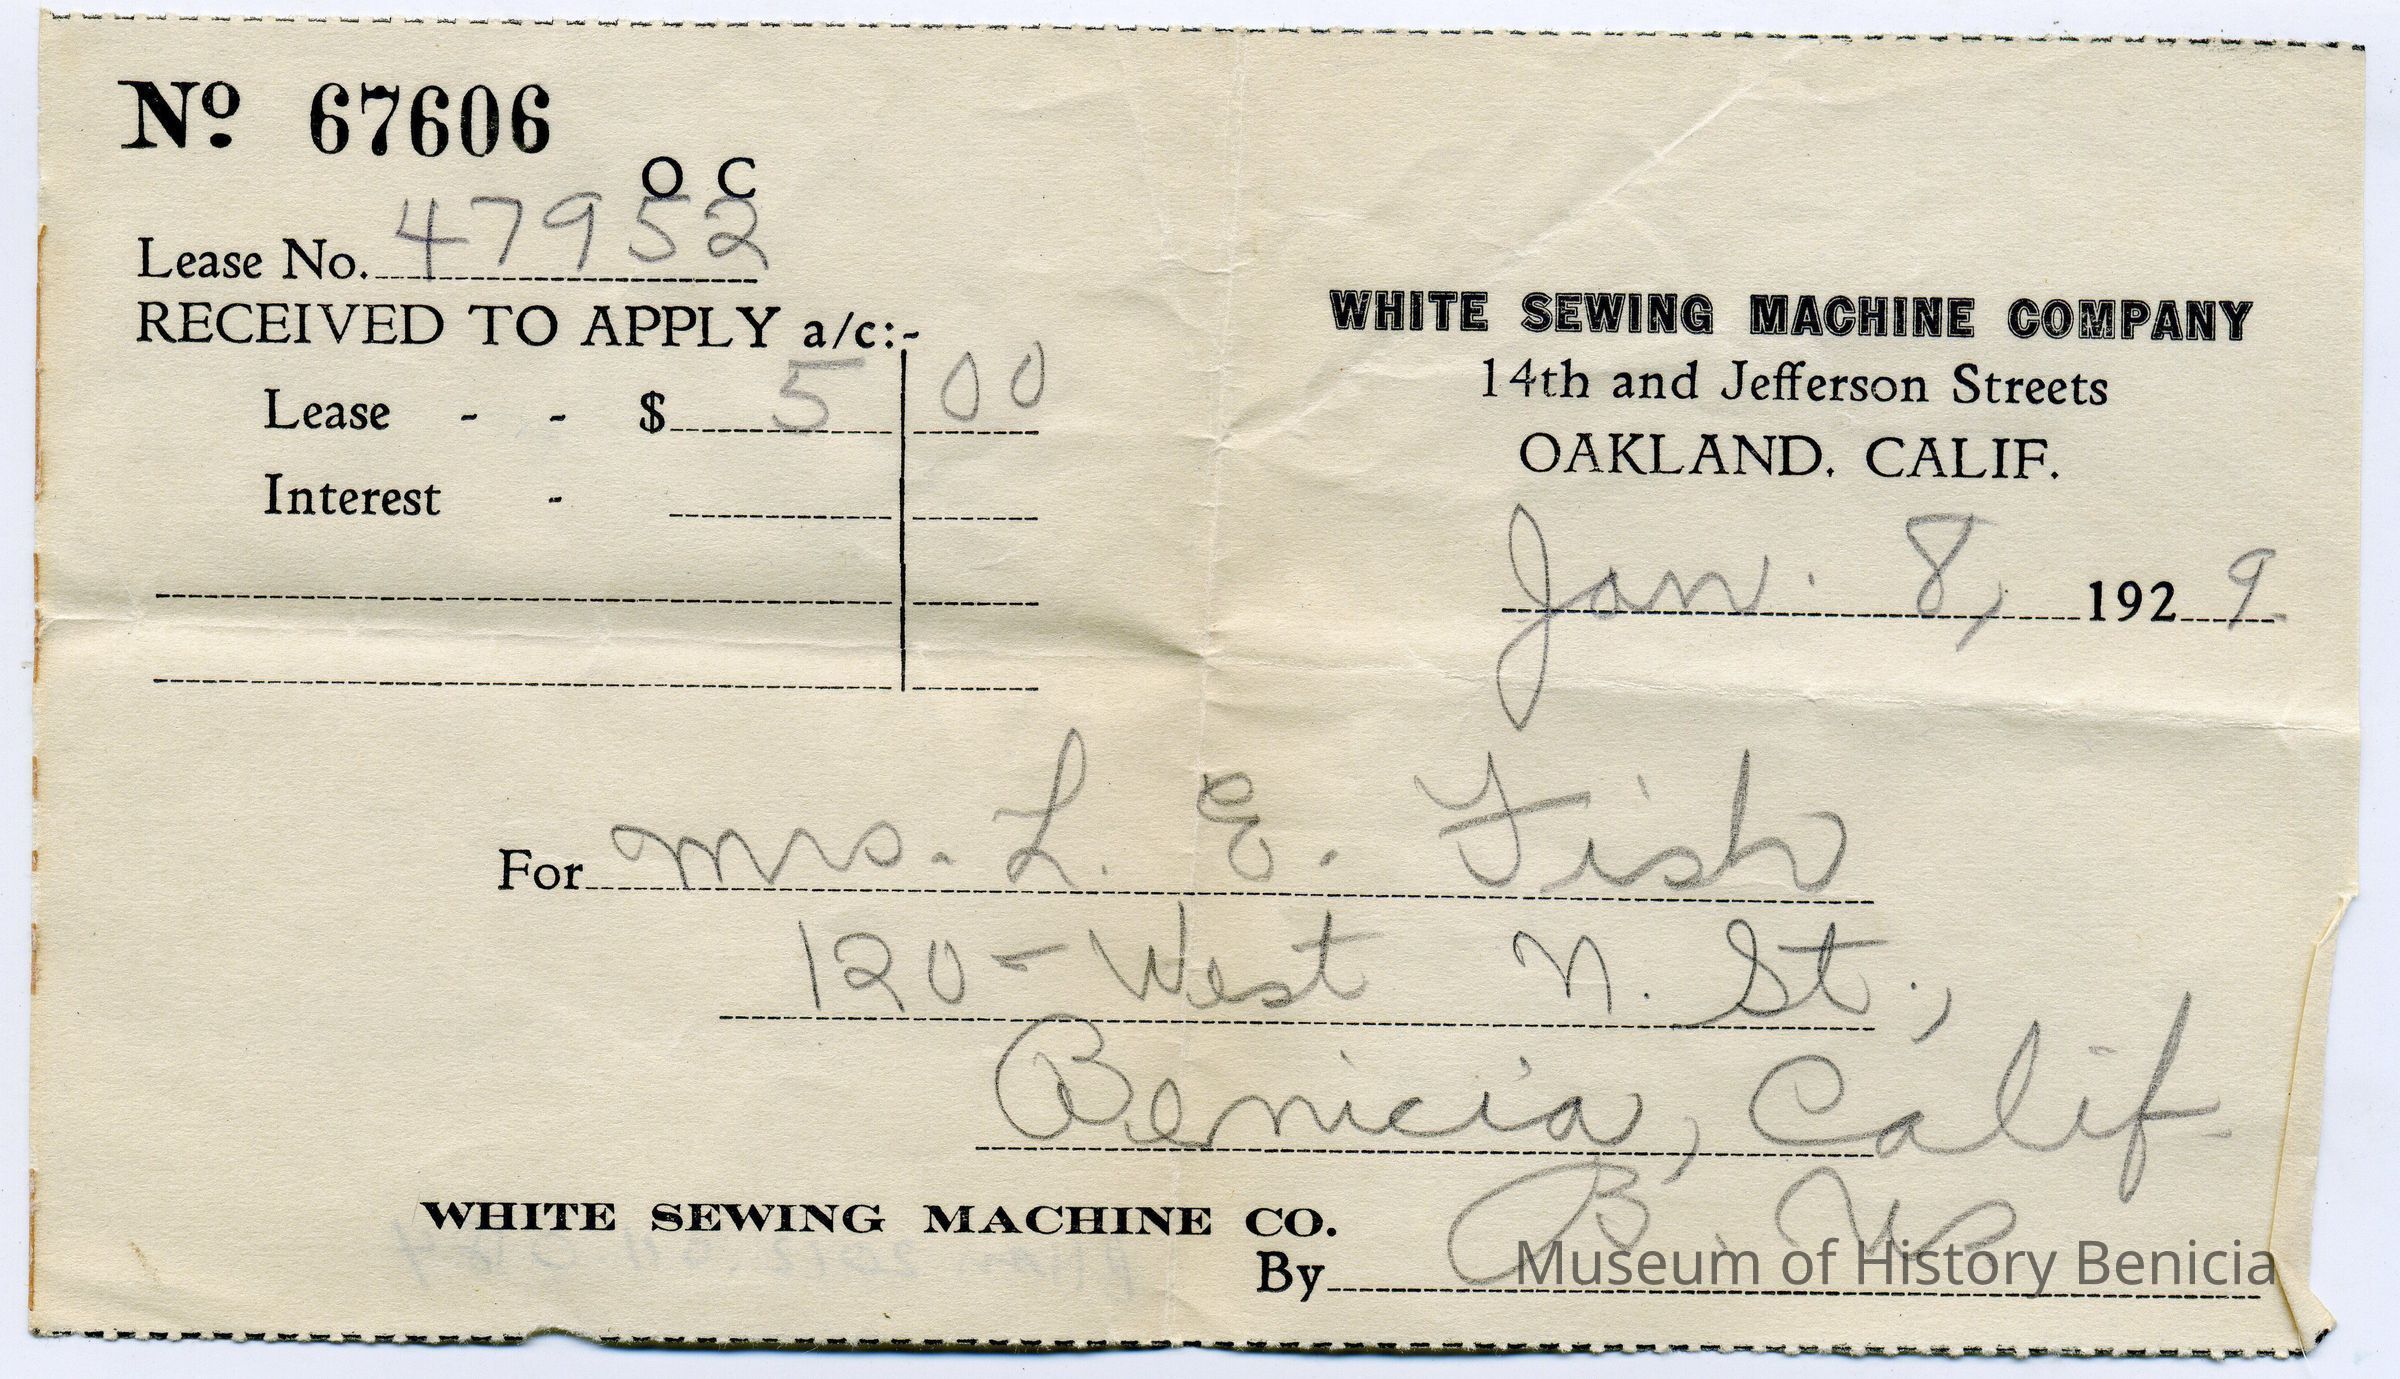 Nº 67606
O C
Lease No. 47952
RECEIVED TO APPLY a/c:-
Lease - - $ 5 00
Interest -
WHITE SEWING MACHINE COMPANY
14th and Jefferson Streets
OAKLAND, CALIF.
Jan. 8, 1929
For Mrs. L. E. Fish
120 - West N. St.,
Benicia, Calif.
WHITE SEWING MACHINE CO.
By B.
Museum of History Benicia